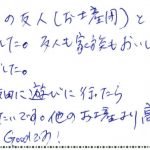 の友人(お土産用)と
した。友人も家族もおいし
した。
飯田に遊びに行ったら
たいです。他のお土産より高
Goodです!